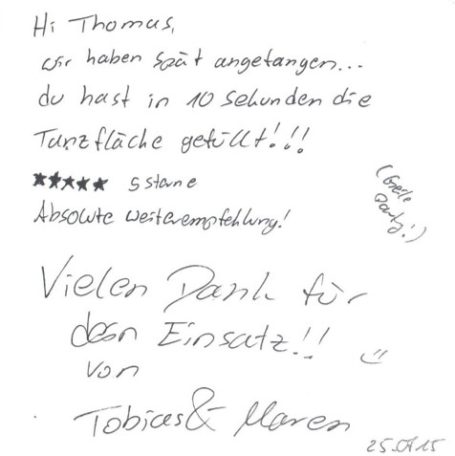 Hi Thomas,
wir haben spät angefangen...
du hast in 10 Sekunden die
Tanzfläche gefüllt!!!
★★★★★ 5 Sterne
Absolute Weiterempfehlung!
(Geile
Party!)
Vielen Dank für
dein Einsatz!!
von
Tobias & Maren
25.07.15